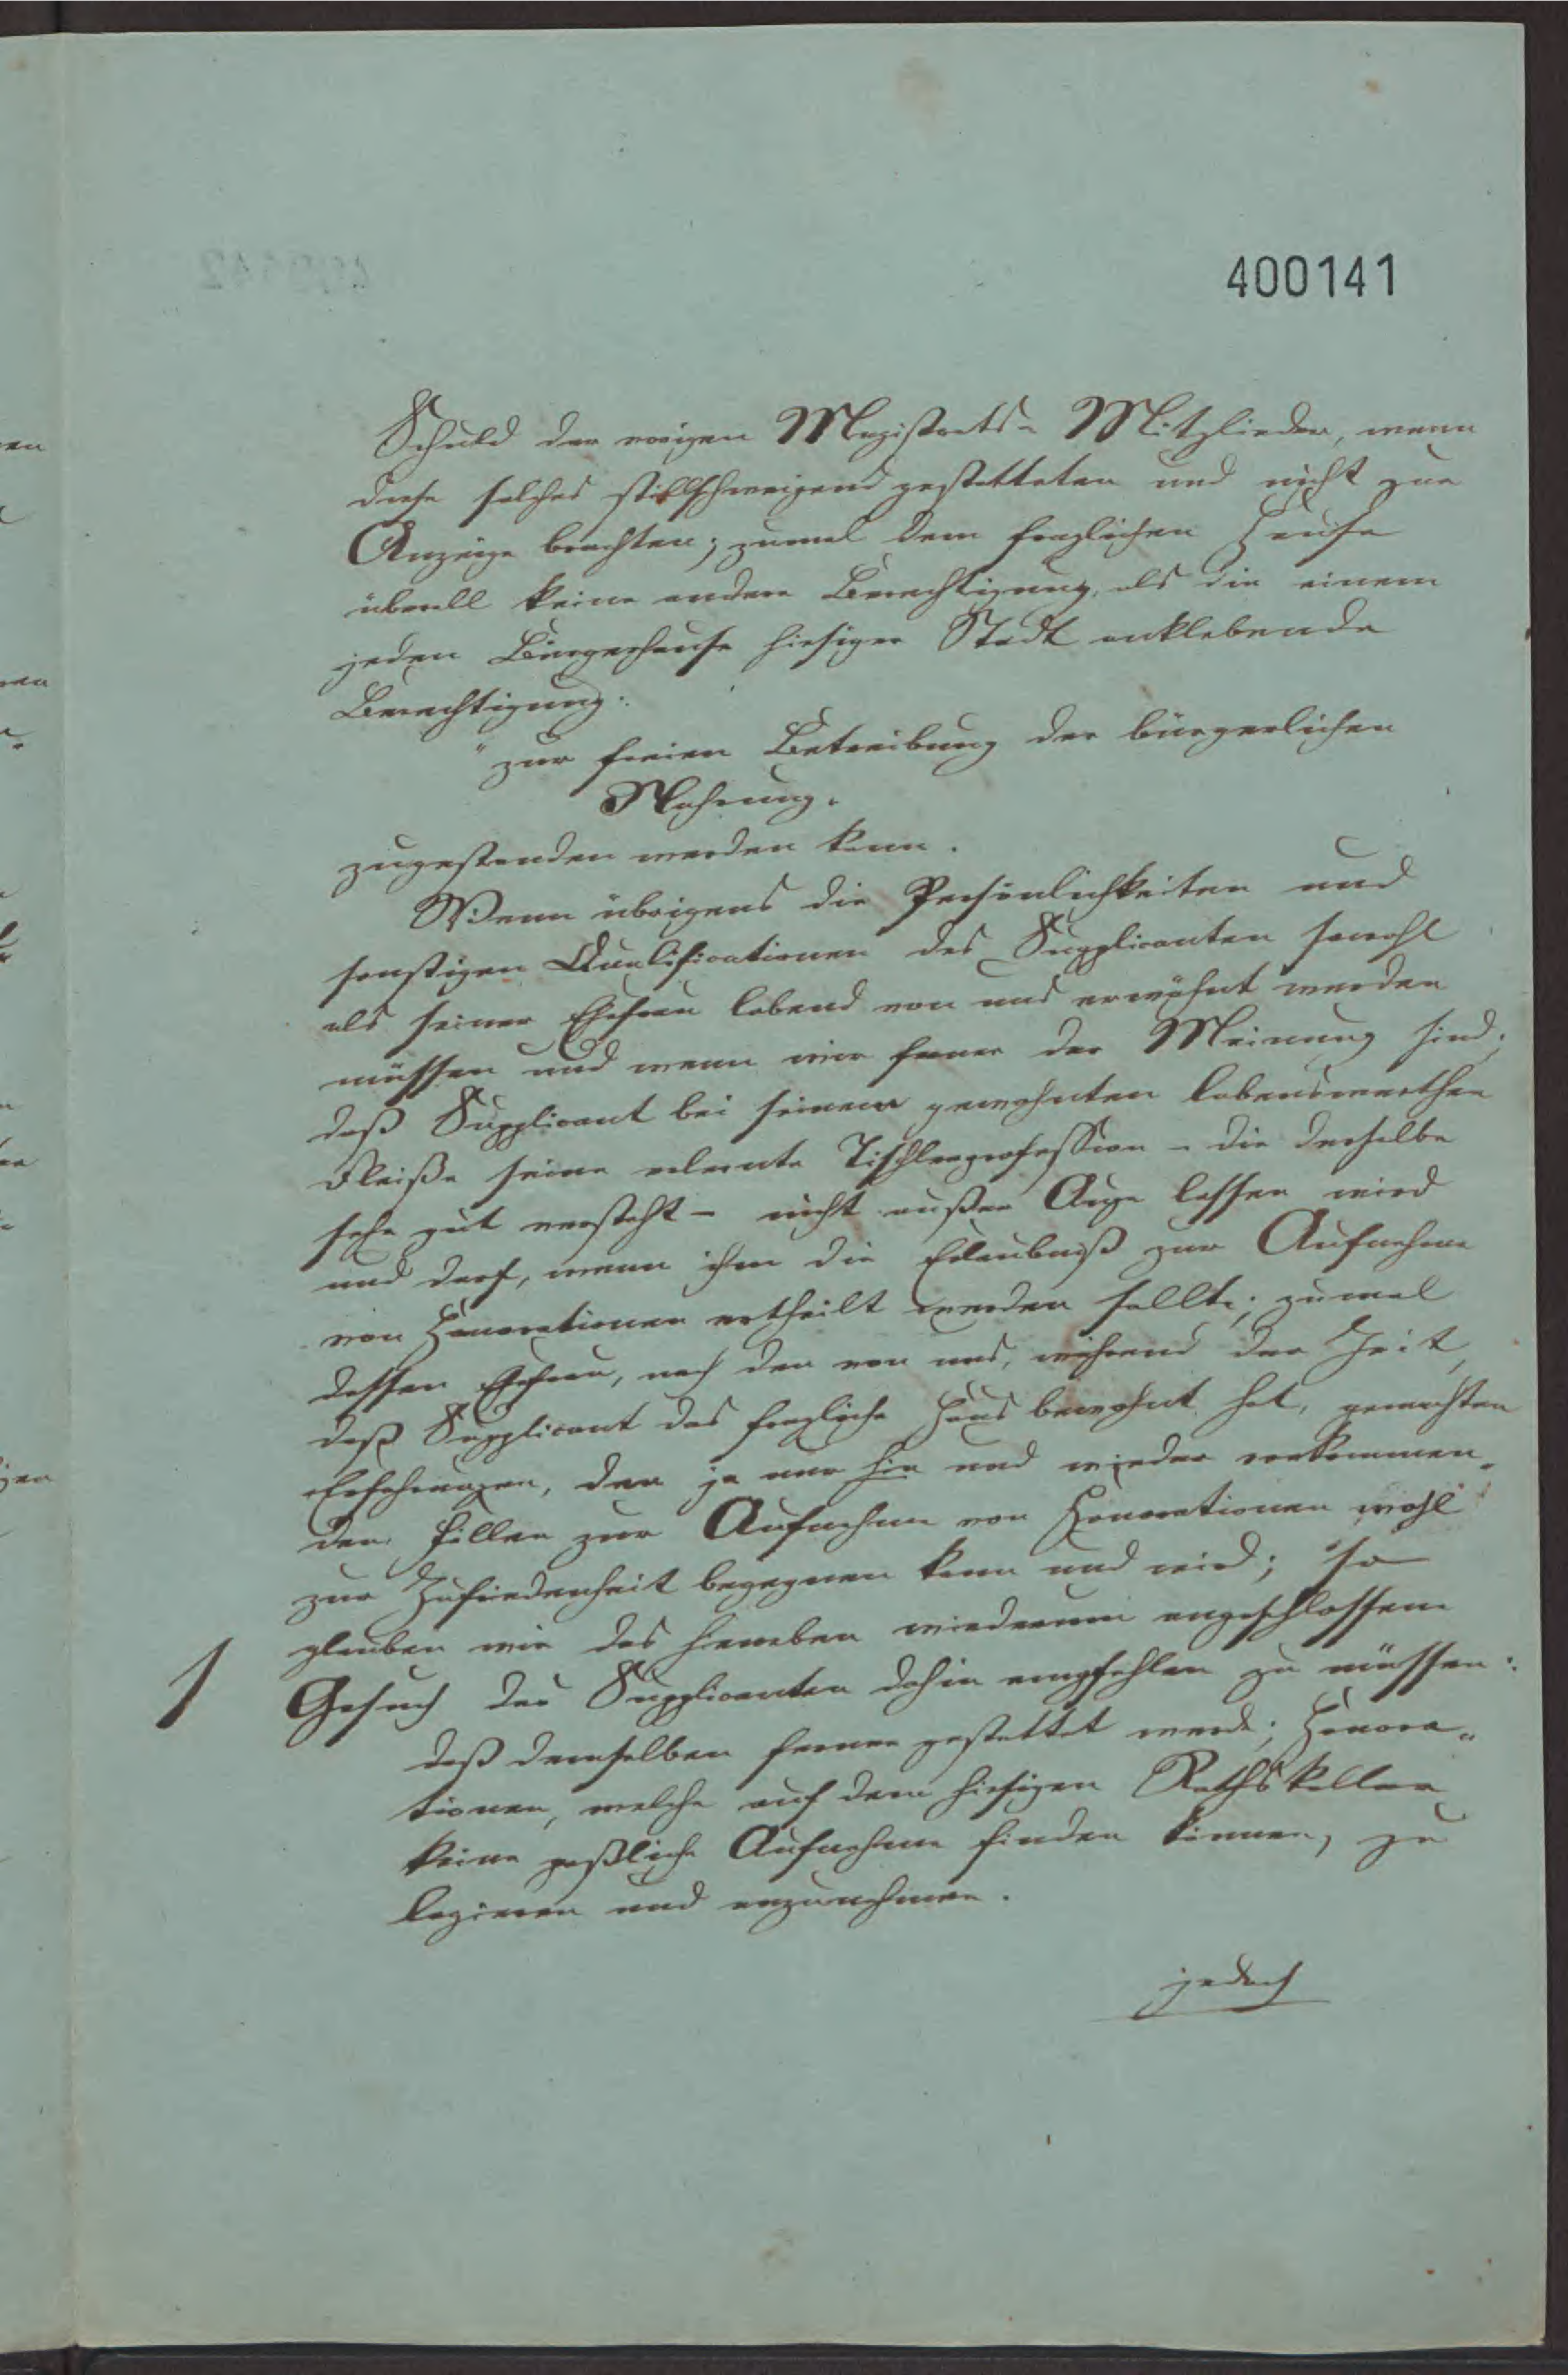 400141
Schuld der vorigen Magistrats- Mitglieder, wenn
diese solches stillschweigend gestatteten und nicht zur
Anzeige brachten; zumal dem fraglichen Hause
überall keine andere Berechtigung, als die einem
jeden Bürgerhause hiesiger Stadt anklebende
Berechtigung:
"zur freien Betreibung der bürgerlichen
Nahrung.
zugestanden werden kann.
Wenn übrigens die Persönlichkeiten und
sonstigen Qualificationen des Supplicanten sowohl
als seiner Ehefrau lobend von uns erwähnt werden
müssen und wenn wir ferner der Meinung sind,
daß Supplicant bei seinem gewohnten lobenswerthen
Fleiße seine erlernte Tischlerprofession - die derselbe
sehr gut versteht - nicht außer Auge lassen wird
und darf, wenn ihm die Erlaubniß zur Aufnahme
von Honorationen ertheilt werden sollte; zumal
dessen Ehefrau, nach den von uns, während der Zeit,
daß Supplicant das fragliche Haus bewohnt hat, gemachten
Erfahrungen, den ja nur hin und wieder vorkommen-
den Fällen zur Aufnahme von Honorationen wohl
zur Zufriedenheit begegnen kann und wird; so
glauben wir das hierneben wiederum angeschlossene
1 Gesuch des Supplicanten dahin empfehlen zu müssen:
daß demselben ferner gestattet werde; Honora-
tionen, welche auf dem hiesigen Rathskeller
keine paßliche Aufnahme finden können, zu
logieren und anzunehmen.
jedoch